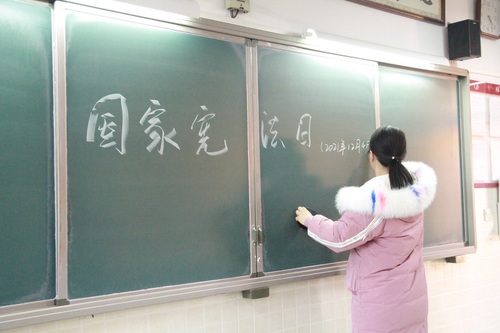 国家宪法日
(2021年12月4